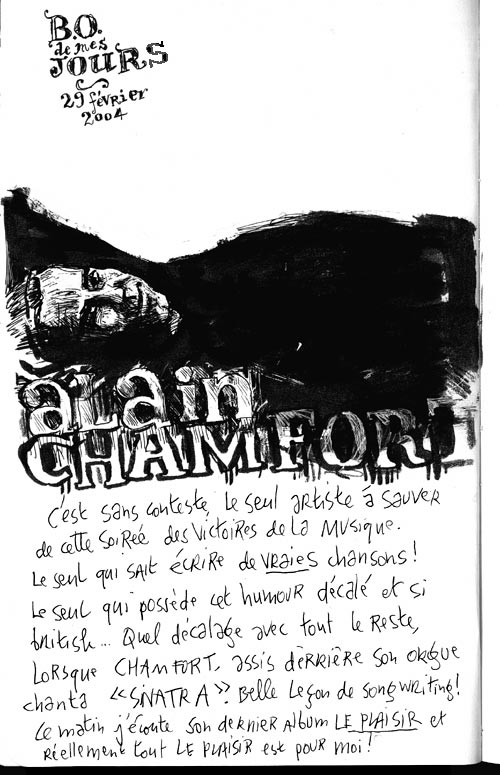 B.O.
de mes
JOURS
29 février
2004
alain
CHAMFORT
C'est sans conteste, le seul artiste à sauver
de cette soirée des Victoires de la Musique.
Le seul qui sait écrire de vraies chansons!
Le seul qui possède cet humour décalé et si
british... Quel décalage avec tout le reste,
Lorsque CHAMFORT, assis derrière son orgue
chanta "SINATRA". Belle leçon de songwriting!
Ce matin j'écoute son dernier album LE PLAISIR et
réellement tout LE PLAISIR est pour moi!